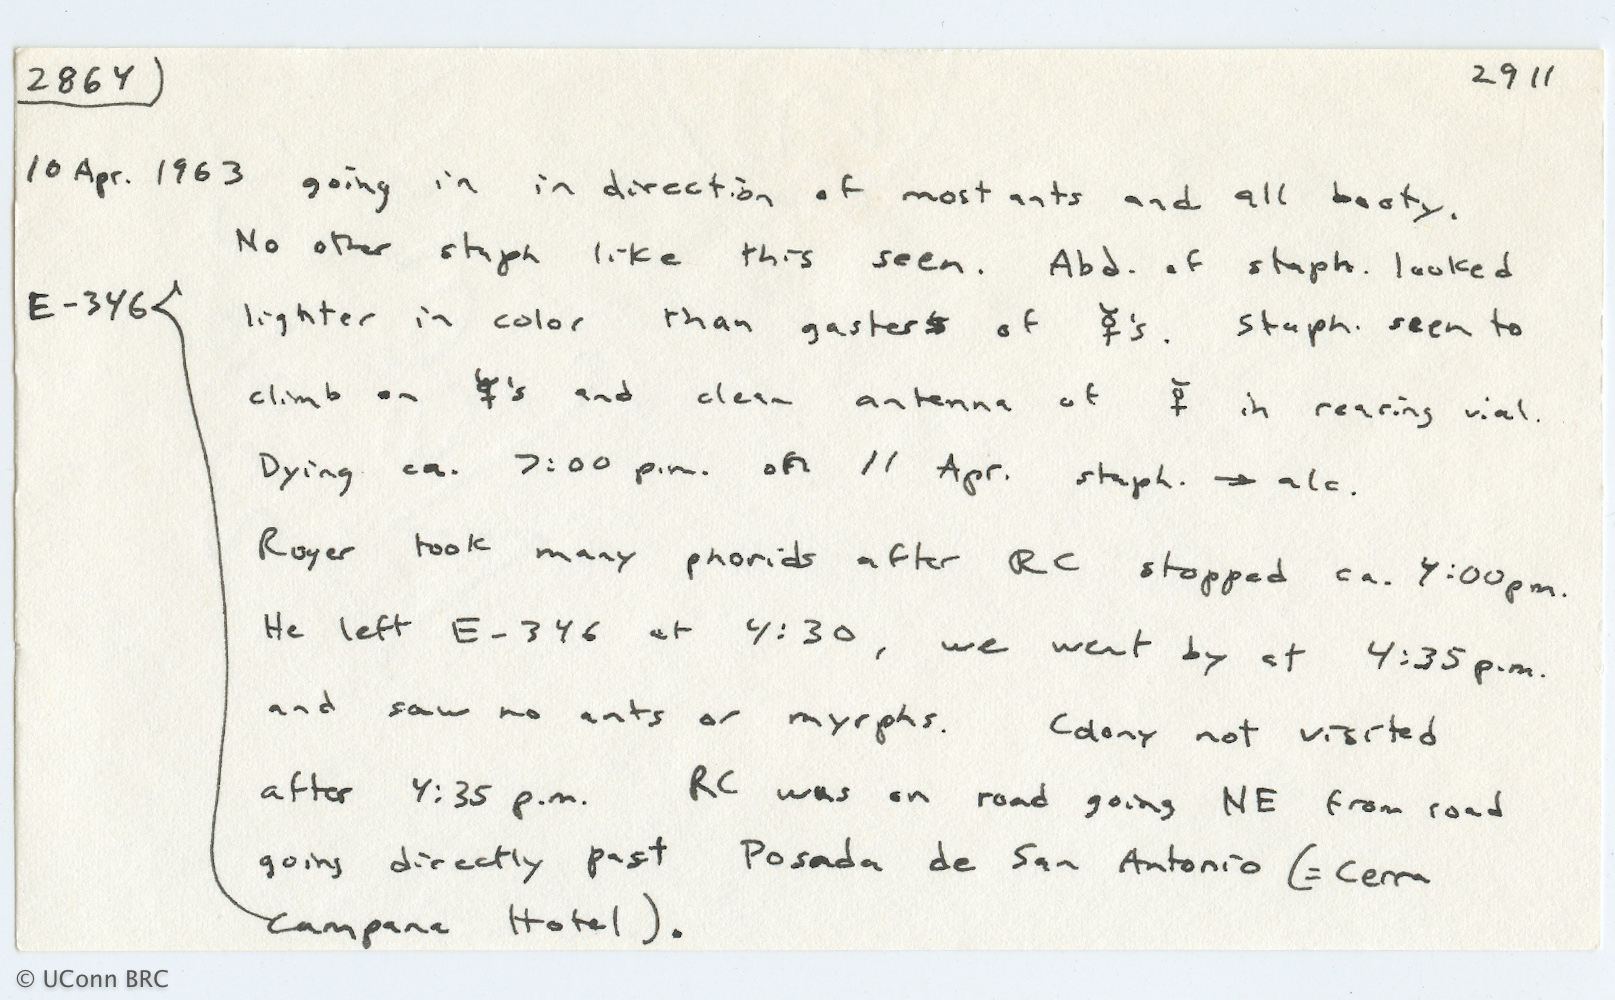 2864)
2911
10 Apr. 1963 going in in direction of most ants and all booty.
No other staph like this seen. Abd. of staph. looked
E-346 lighter in color than gasters of ☿'s. Staph. seen to
climb on ☿'s and clean antenna of ☿ in rearing vial.
Dying ca. 7:00 p.m. on 11 Apr. staph. → alc.
Royer took many phorids after RC stopped ca. 4:00pm.
He left E-346 at 4:30, we went by at 4:35 p.m.
and saw no ants or myrphs. Colony not visited
after 4:35 p.m. RC was on road going NE from road
going directly past Posada de San Antonio (= Cerra
Campana Hotel).
© UConn BRC